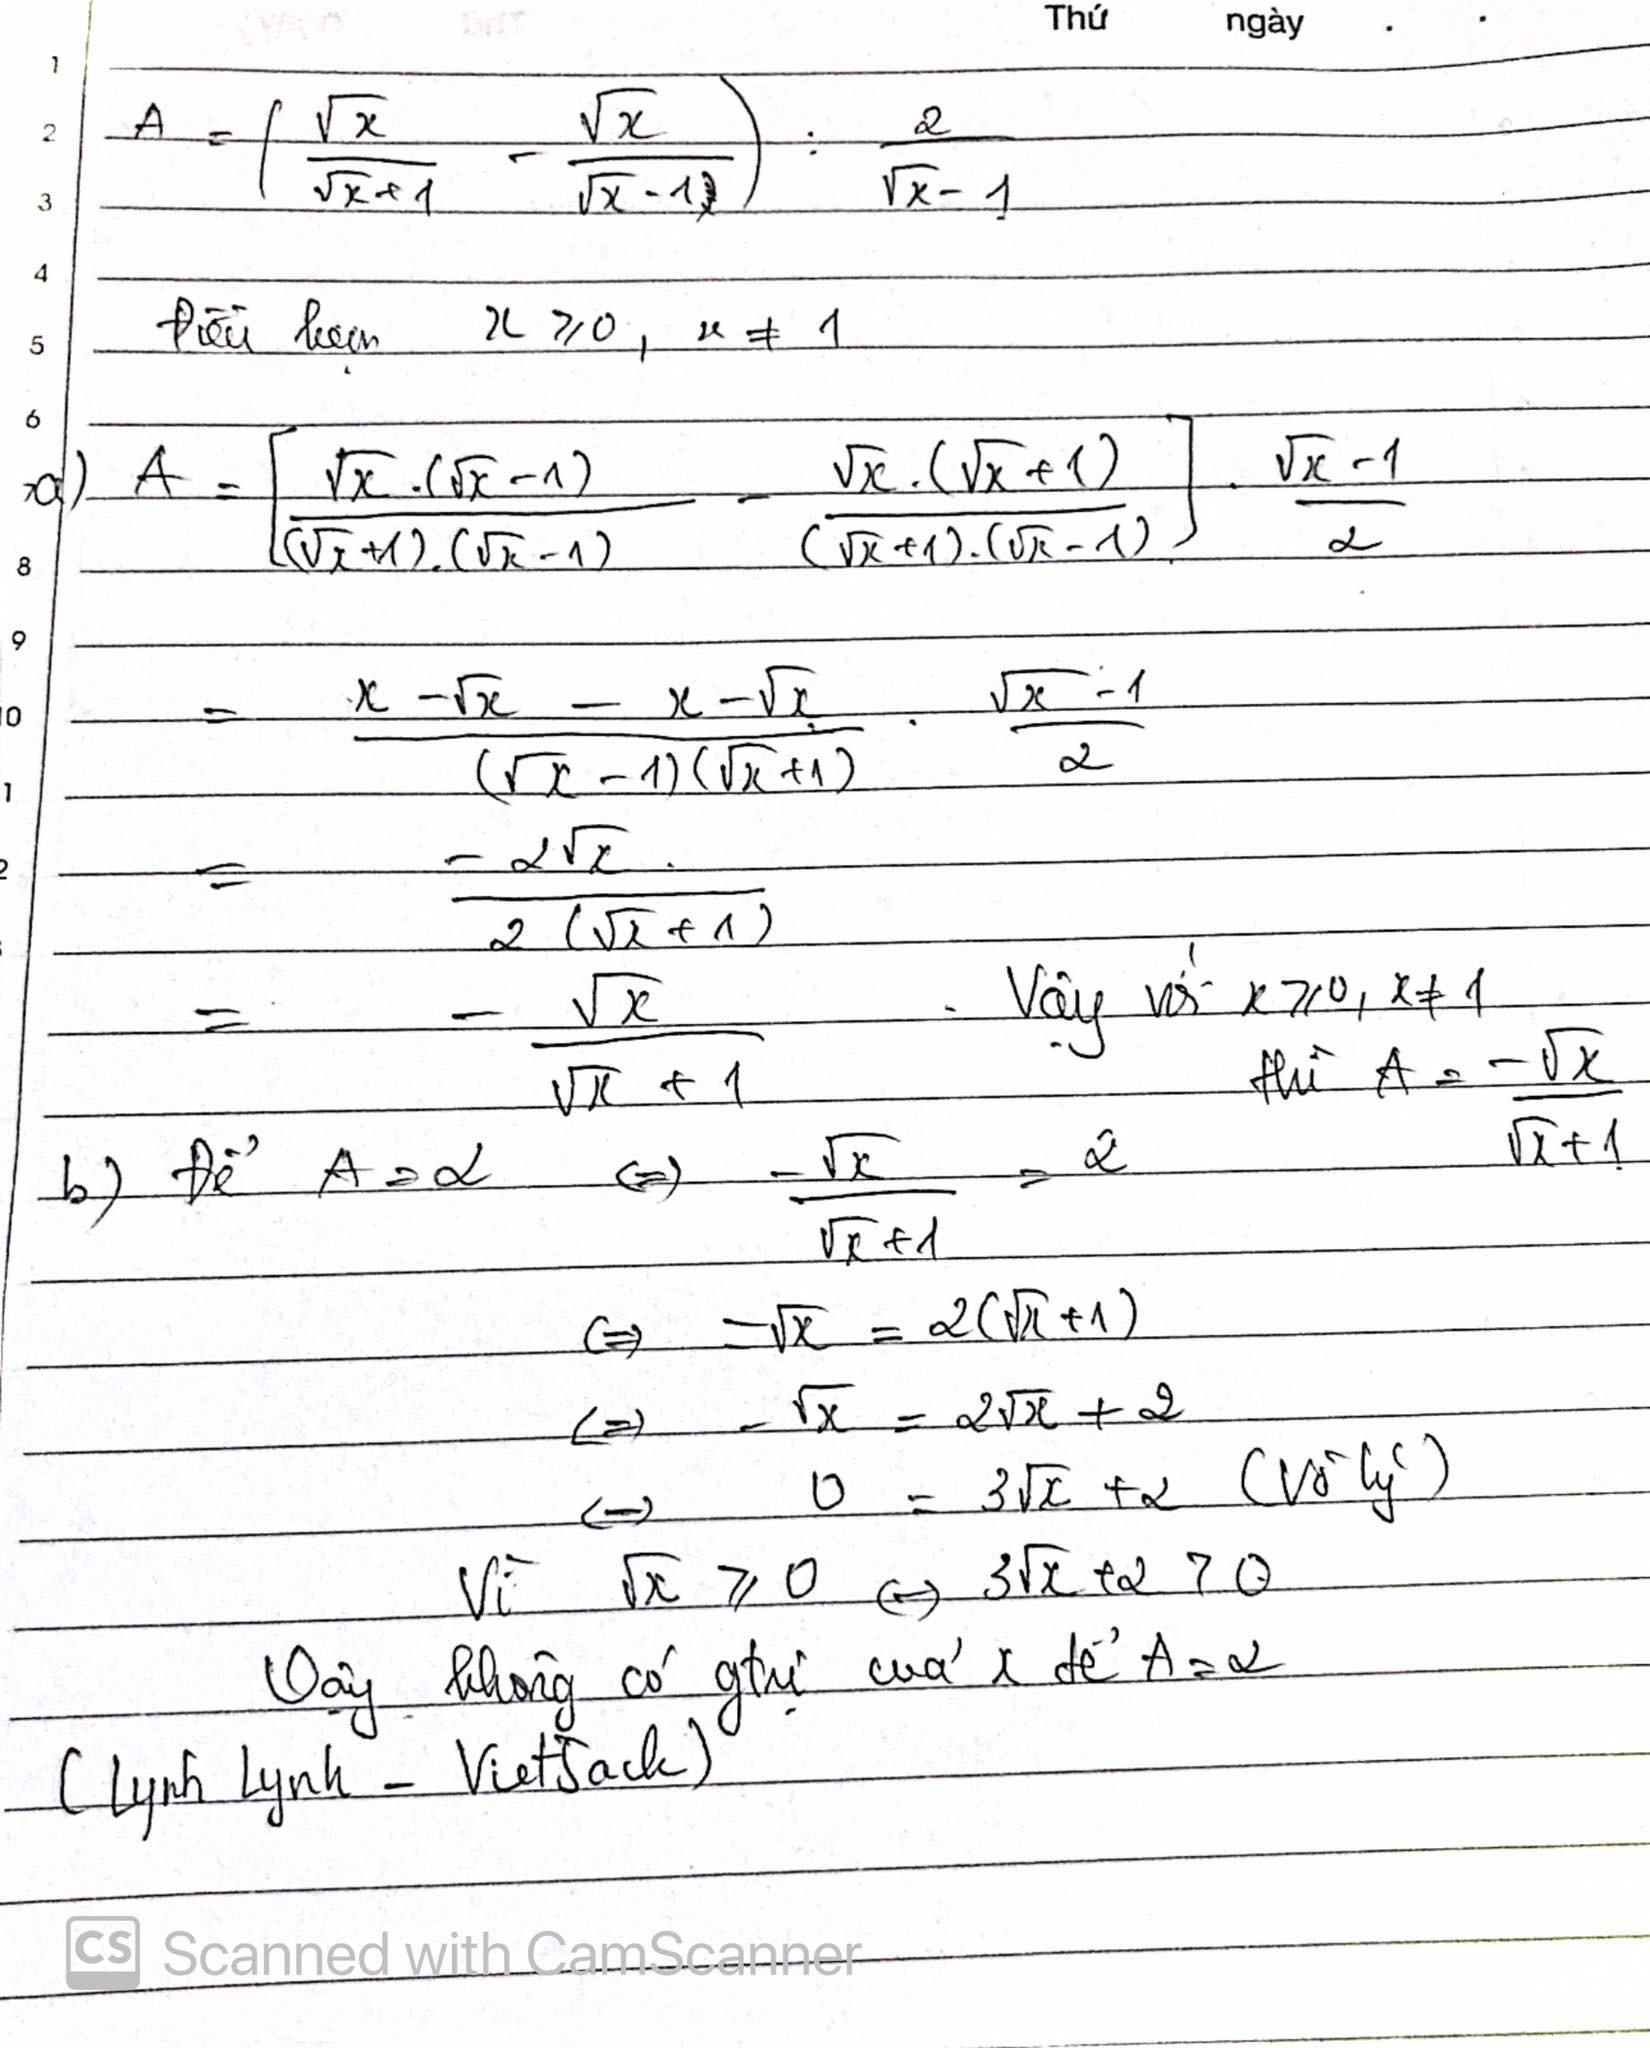 Thứ ngày . .
1
2 A = (√x/(√x+1) - √x/(√x-1)) : 2/(√x-1)
3
4
5 Điều kiện x ⩾ 0, x ≠ 1
6
7 a) A = [√x.(√x-1)/((√x+1).(√x-1)) - √x.(√x+1)/((√x+1).(√x-1))] . (√x-1)/2
8
9
10 = (x-√x - x-√x)/((√x-1)(√x+1)) . (√x-1)/2
1
2 = -2√x/(2(√x+1))
= - √x/(√x+1) . Vậy với x ⩾ 0, x ≠ 1
thì A = -√x/(√x+1)
b) Để A = 2 <=> -√x/(√x+1) = 2
<=> -√x = 2(√x+1)
<=> -√x = 2√x + 2
<=> 0 = 3√x + 2 (Vô lý)
Vì √x ⩾ 0 <=> 3√x + 2 > 0
Vậy không có gtrị của x để A = 2
(Lynh Lynh - VietJack)
CS Scanned with CamScanner